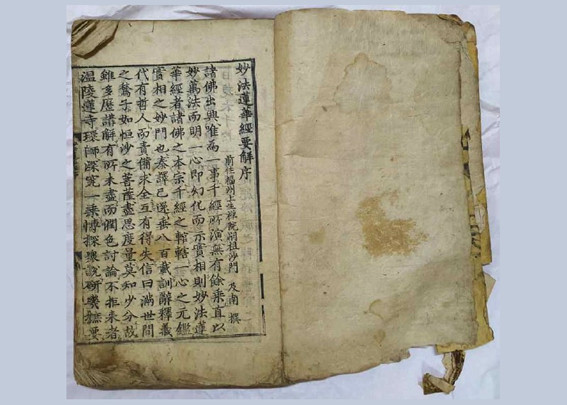 妙法蓮華經要解序
前住福州上生禪院嗣祖沙門 及南 撰
諸佛出興唯爲一事千經所演無有餘乘直以
妙萬法而明一心即幻化而示實相則妙法蓮
華經者諸佛之本宗千經之輨轄一心之元鑑
實相之妙門也秦譯已還垂八百載訓辭釋義
代有哲人而責備求全互有得失信曰滿世間
之鶖子如恒沙之菩薩盡思度量莫知少分故
雖多歷講解有所未盡而潤色討論不拒來者
温陵蓮寺環師深究一乘博採衆說研幾摭要